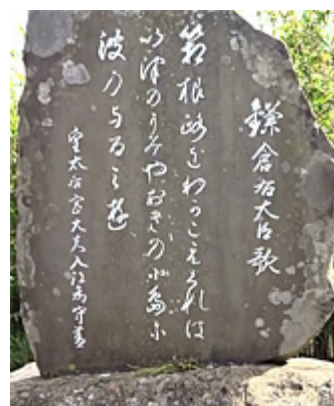 鎌倉右大臣歌
箱根路をわかこえくれは
以津のうみやおきの小島尓
波乃与る三遊
皇太后宮大夫入江為守書